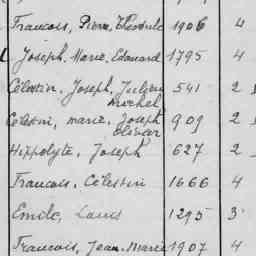 Francois, Pierre, Théodule 1906 4
Joseph, Marie, Edouard 1795 4
Célestin, Joseph, Julien 541 2
Michel
Célestin, Marie, Joseph 909 2
Olivier
Hippolyte, Joseph 627 2
Francois, Célestin 1666 4
Emile, Louis 1295 3
Francois, Jean-Marie 1907 4